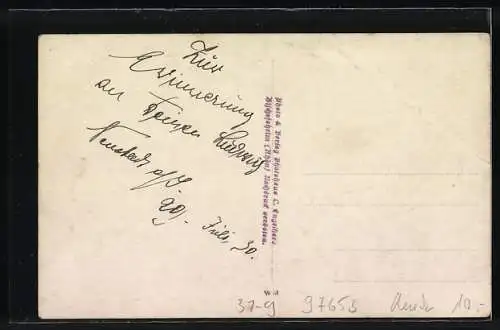 Zur
Erinnerung
an Deinen Ludwig
Neustadt a/S.
20. Juli 30.
Photo & Verlag Photohaus C. Engelhart
Bischofsheim (Rhön) Nachdruck verboten.
37-9 97653 10.-